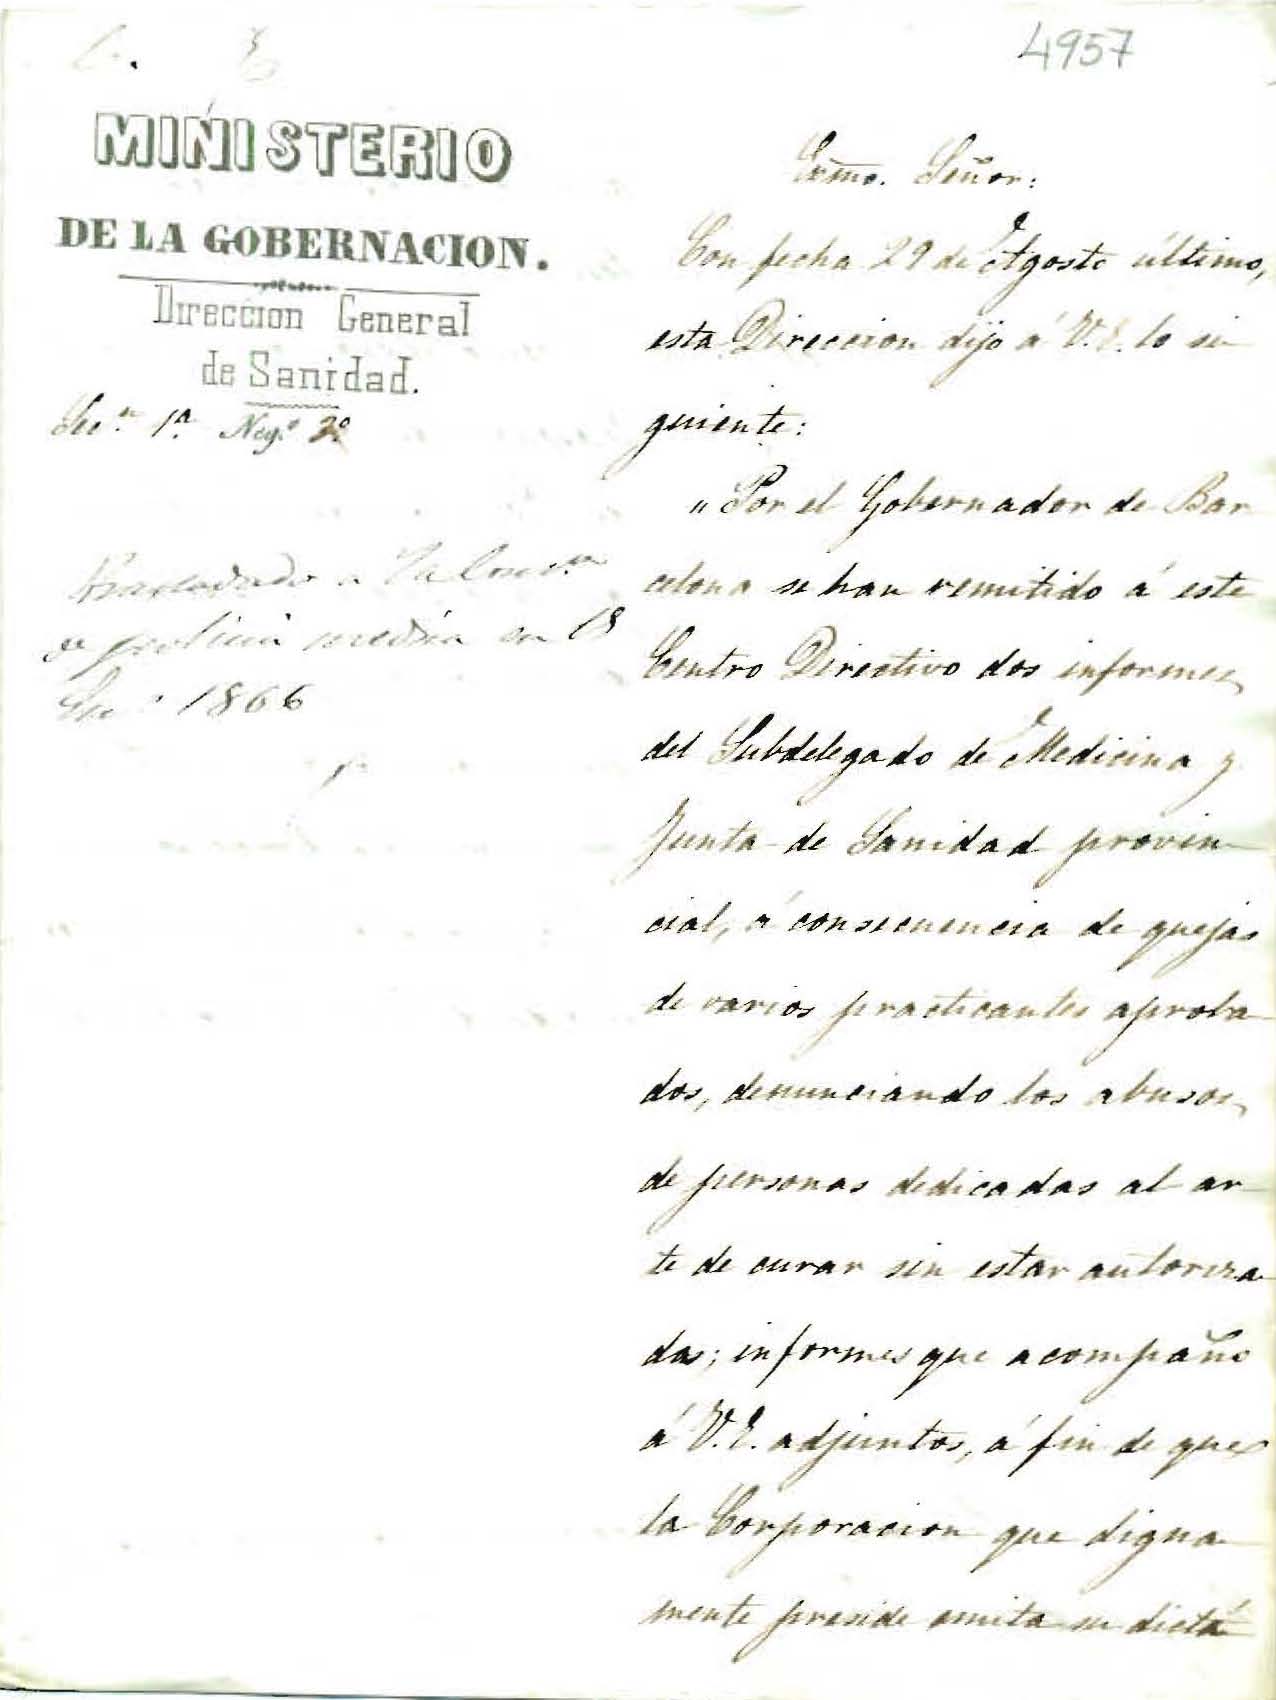 4957
MINISTERIO
DE LA GOBERNACION.
Direccion General
de Sanidad.
Secn. 1ª. Negº. 3º
a la
de policia medica en 18
1866
Exmo. Señor:
Con fecha 29 de Agosto último,
esta Direccion dijo á V.E. lo si-
guiente:
"Por el Gobernador de Bar-
celona se han remitido á este
Centro Directivo dos informes
del Subdelegado de Medicina y
Junta de Sanidad provin-
cial, á consecuencia de quejas
de varios practicantes aproba-
dos, denunciando los abusos
de personas dedicadas al ar-
te de curar sin estar autoriza-
das; informes que acompaño
á V.E. adjuntos, á fin de que
la Corporacion que digna-
mente preside emita su dictá-